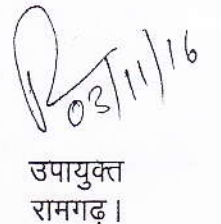 03/11/16
उपायुक्त
रामगढ़।